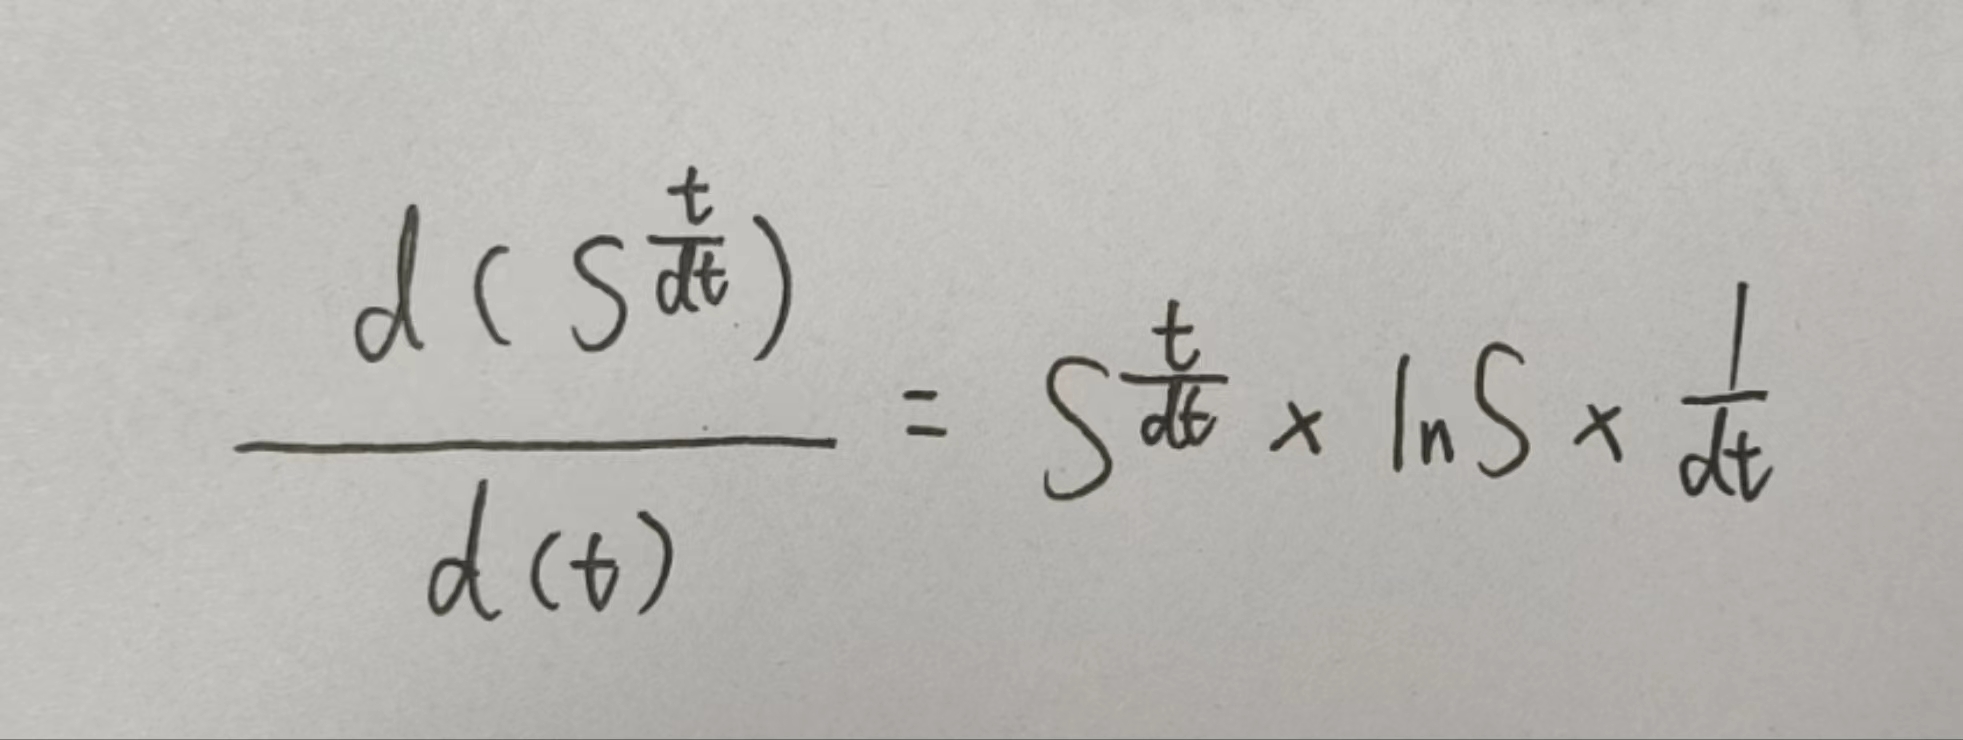 d(S^{\frac{t}{dt}})/d(t) = S^{\frac{t}{dt}} × ln S × \frac{1}{dt}